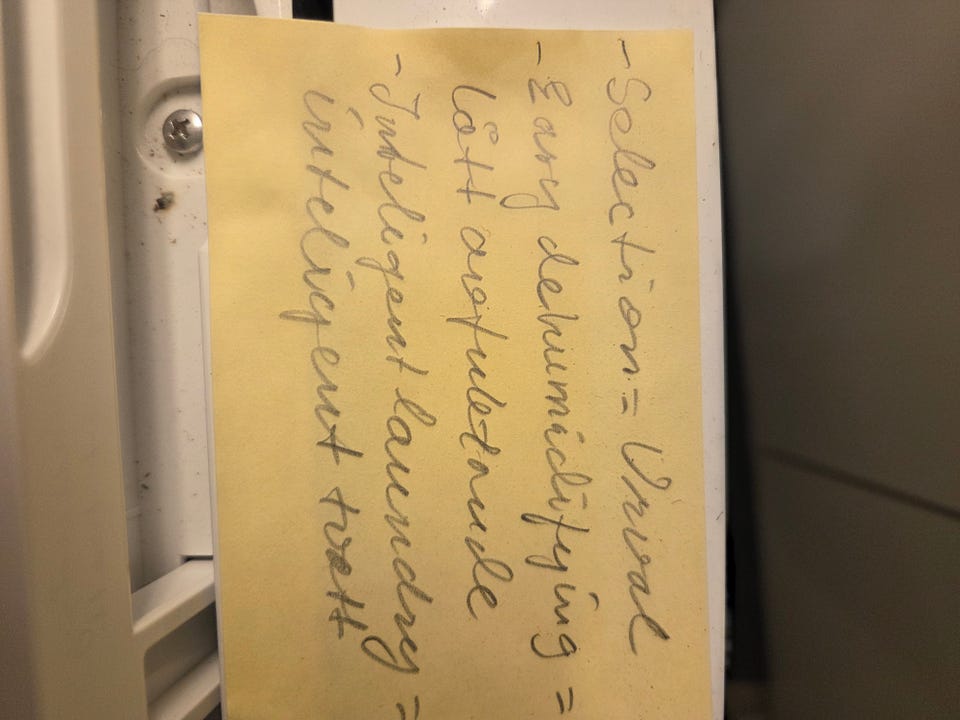 - Selection = Urval
- Easy dehumidifying =
lätt avfuktande
- Inteligent laundry =
inteligent tvätt